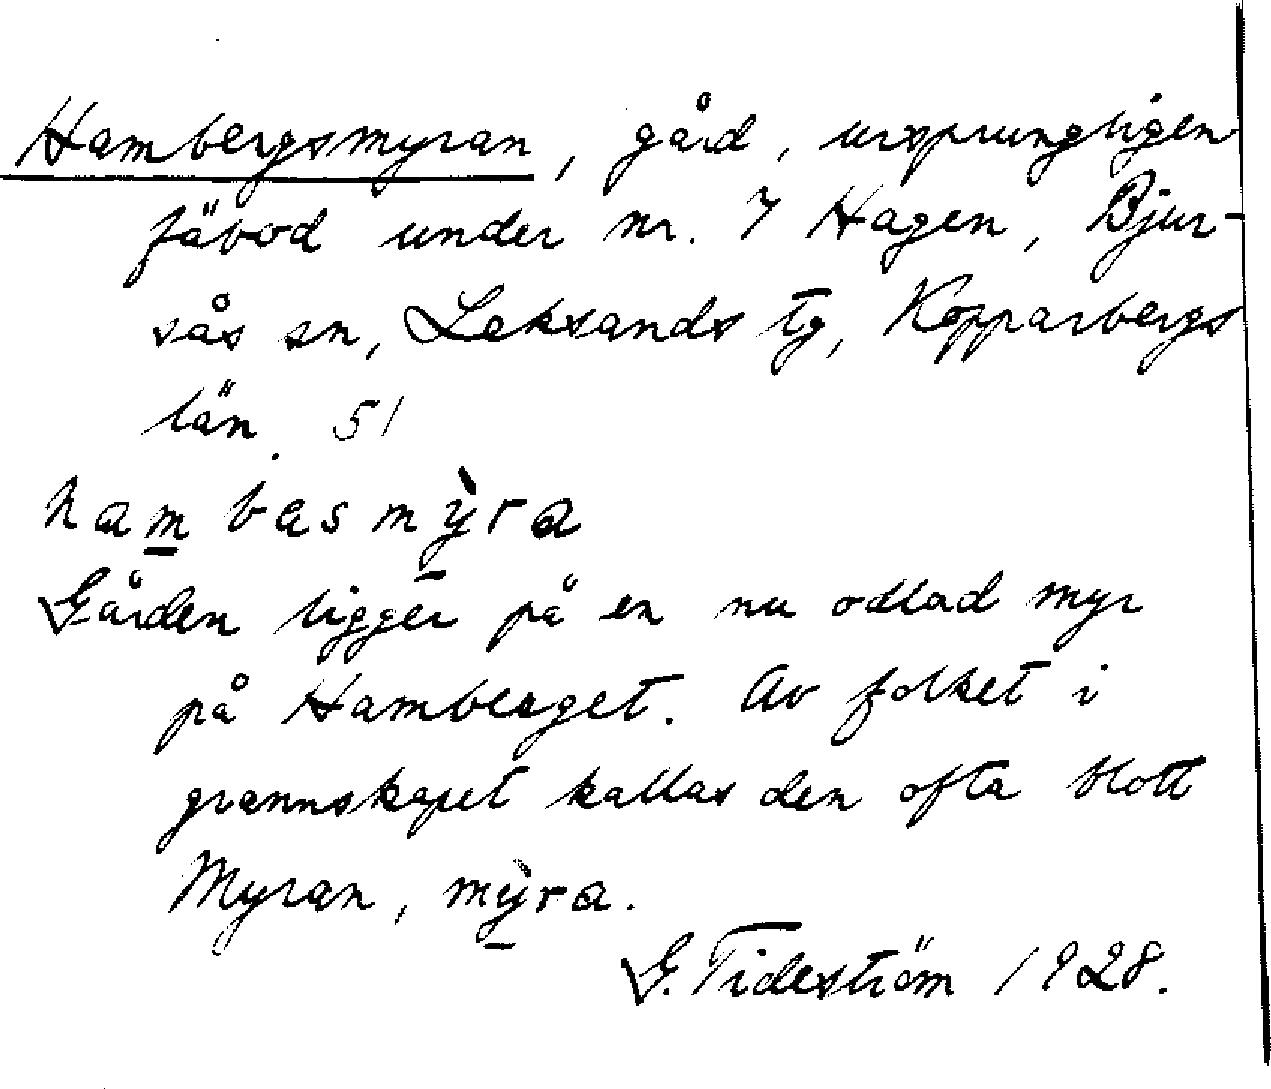 Hambergsmyran, gård, ursprungligen
fäbod under nr. 7 Hagen, Bjur-
sås sn, Leksands tg, Kopparbergs
län. 51
hambasmỳra
Gården ligger på en nu odlad myr
på Hamberget. Av folket i
grannskapet kallas den ofta blott
Myran, mỳra.
G. Tideström 1928.